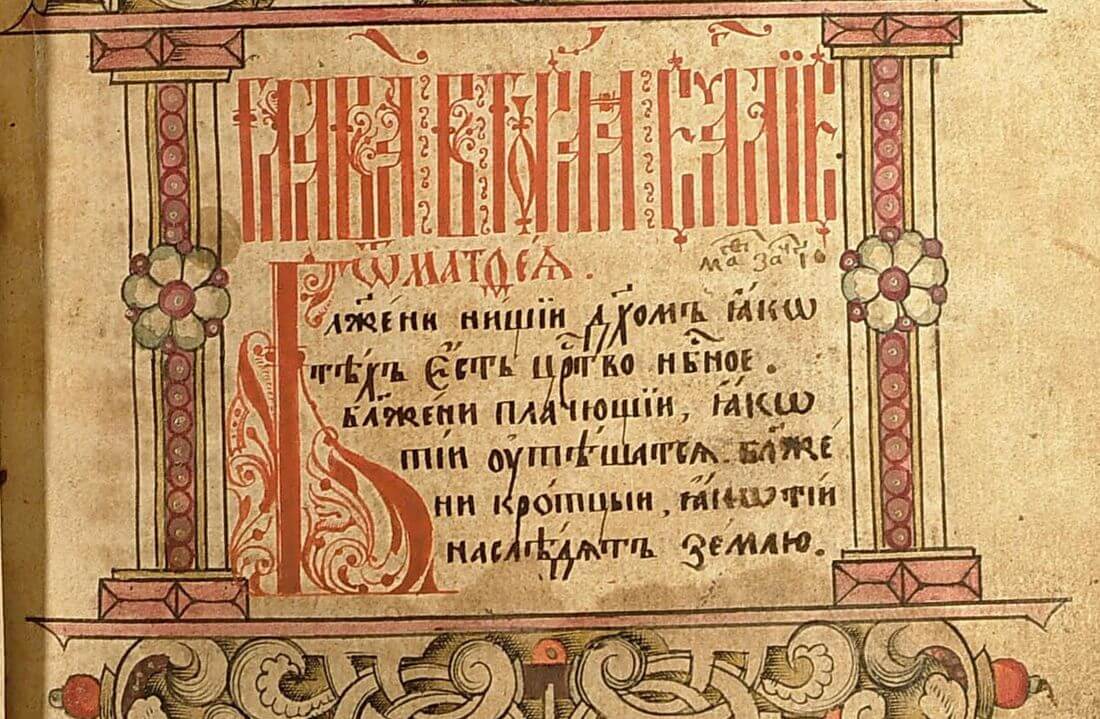 Глава̀ втораѧ єѵа҃лїє
ѿ матѳеѧ.
Бл҃жени нищїи дх҃омъ ꙗкѡ
тѣхъ єсть црⷭ҇тво нб҃ное.
бл҃жени плачющїи, ꙗкѡ
тїи оутѣшатсѧ. бл҃же
ни кротцыи, ꙗкѡ тїи
наслѣдѧтъ землю.